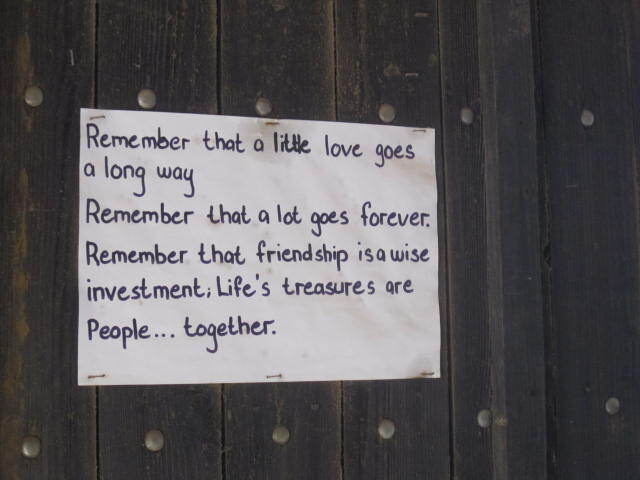 Remember that a little love goes
a long way
Remember that a lot goes forever.
Remember that friendship is a wise
investment; Life's treasures are
People... together.